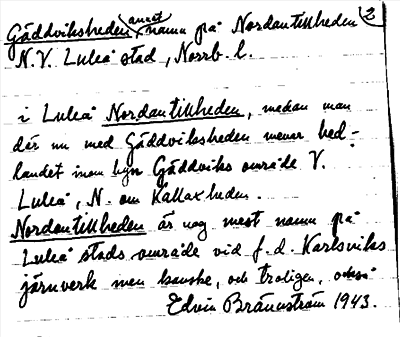 Gäddviksheden annat namn på Nordantillheden 2
N.V. Luleå stad, Norrb. l.
i Luleå Nordantillheden, medan man
där nu med Gäddviksheden menar hed-
landet inom byn Gäddviks område V.
Luleå, N. om Kallaxheden.
Nordantillheden är nog mest namn på
Luleå stads område vid f.d. Karlsviks
järnverk men kanske, och troligen, också
Edvin Brännström 1943.